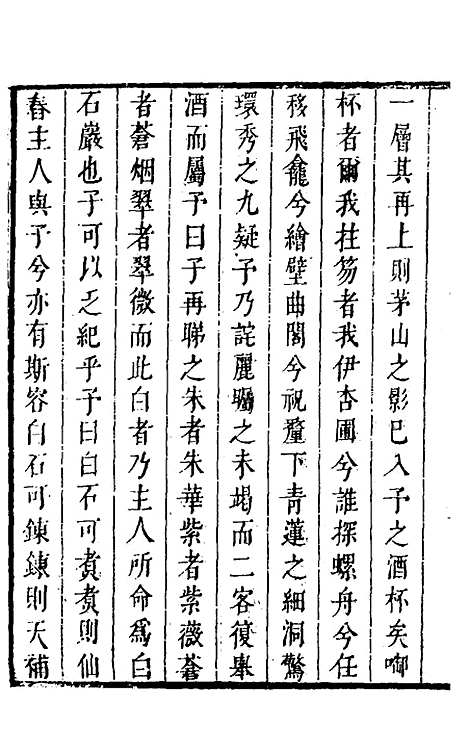 一層其再上則茅山之影已入予之酒杯矣啣
杯者爾我拄笏者我伊杏圃兮誰探螺舟兮任
移飛龕兮繪壁曲閣兮祝釐下青蓮之細洞驚
環秀之九疑予乃詫麗矚之未竭而二客復舉
酒而屬予曰子再睇之朱者朱華紫者紫薇蒼
者蒼烟翠者翠微而此白者乃主人所命爲白
石巖也子可以乏紀乎予曰白石可煑煑則仙
舂主人與予兮亦有斯容白石可鍊鍊則天補